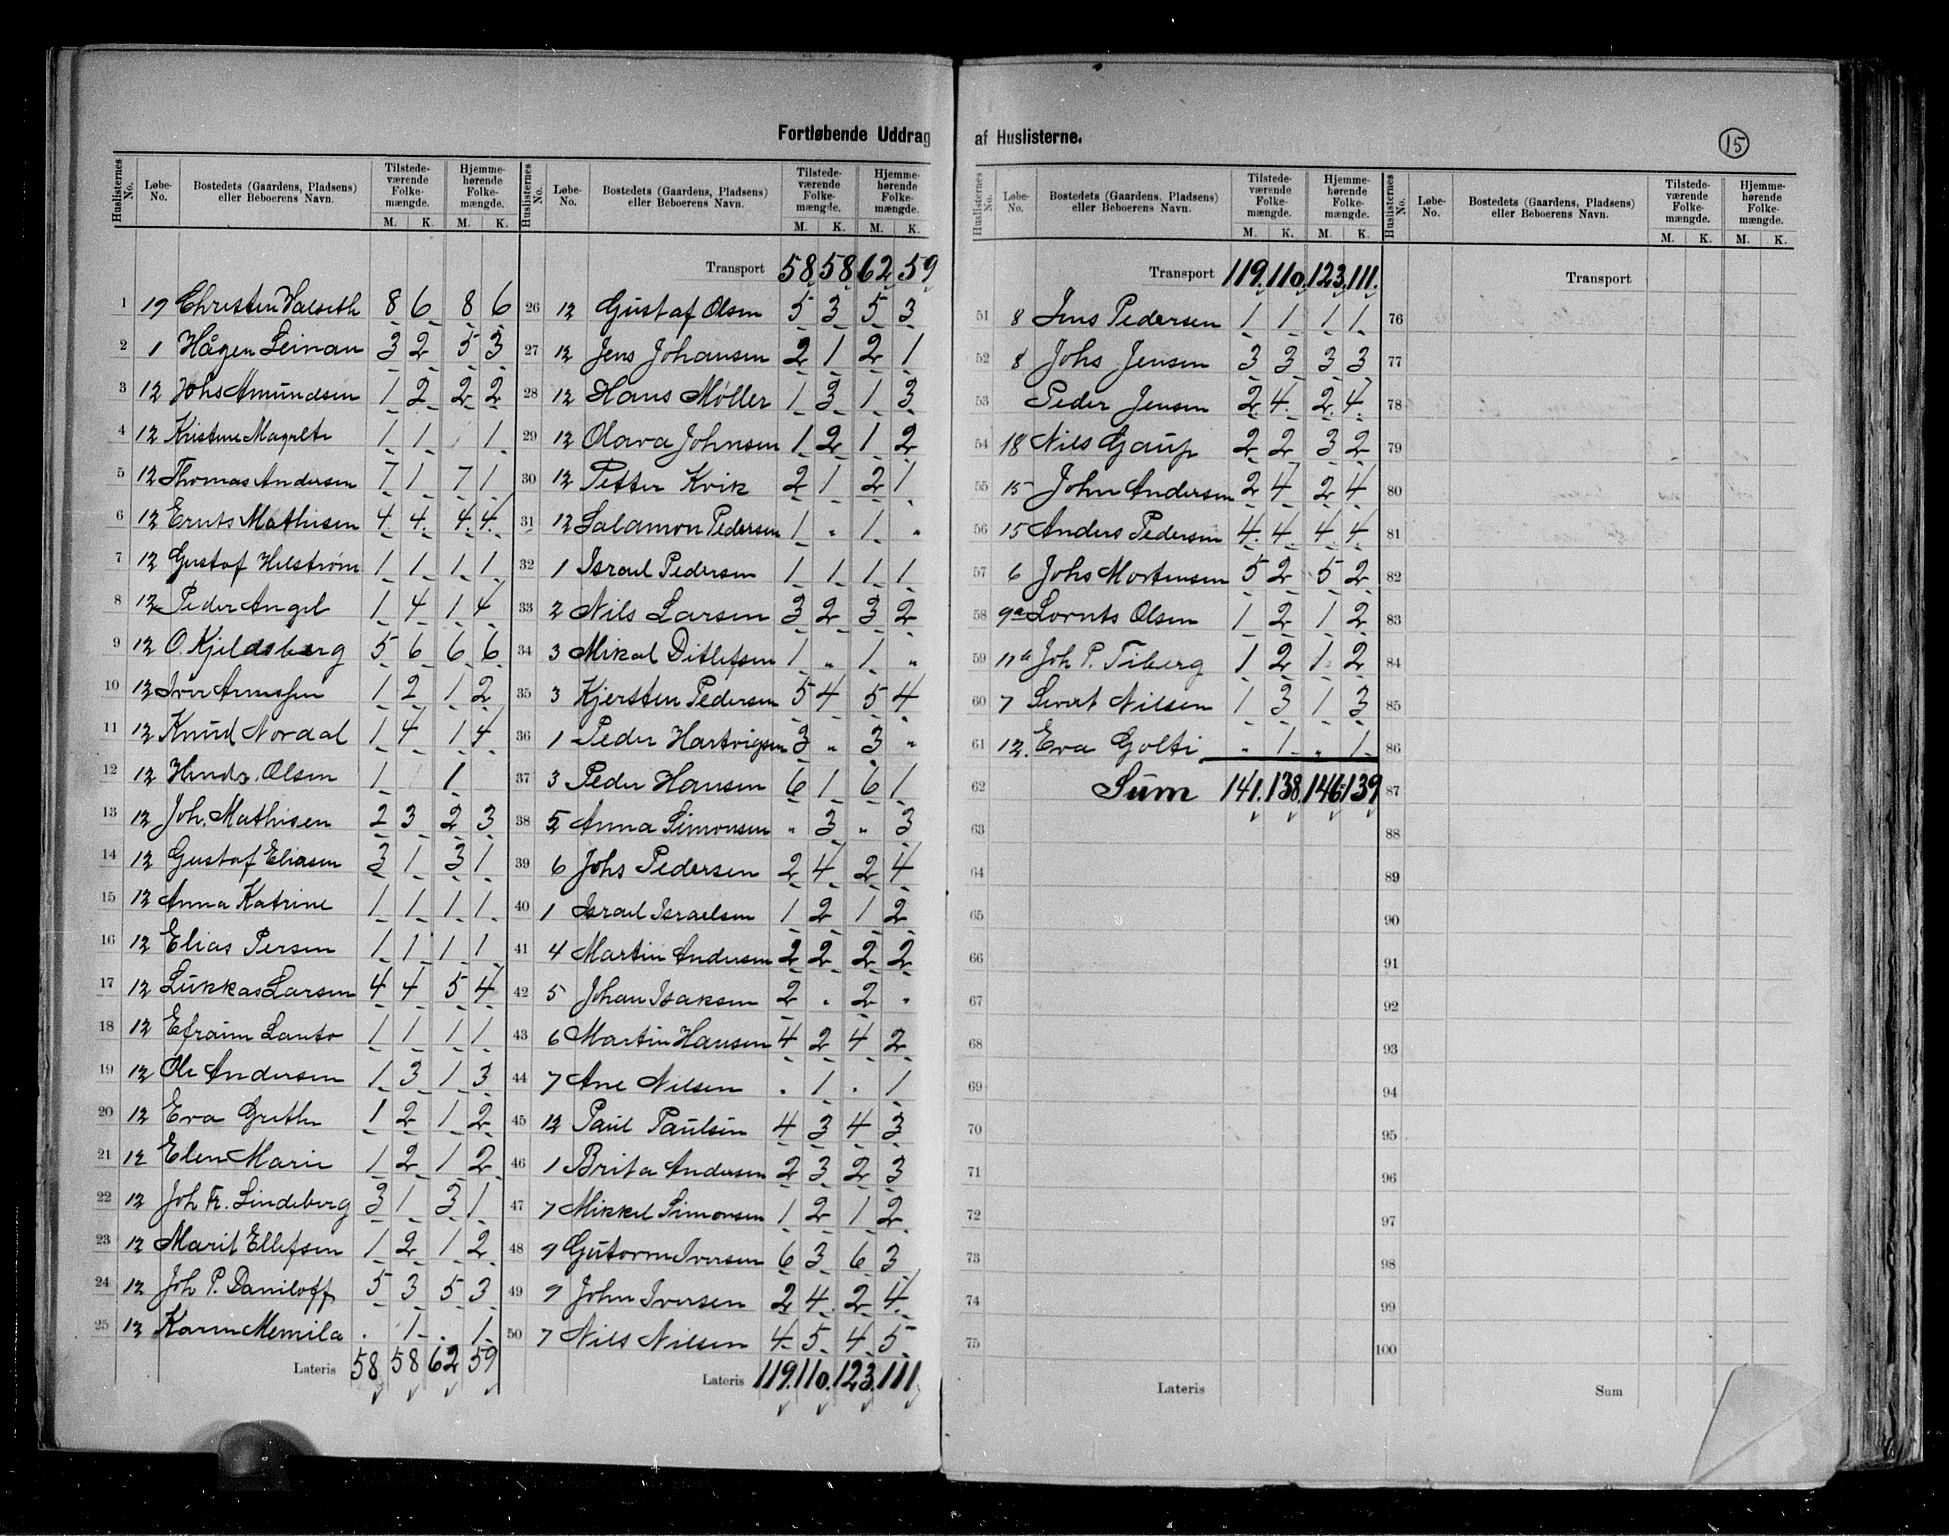 Fortløbende Uddrag af Huslisterne.
15
Huslisternes No. Løbe-No. Bostedets (Gaardens, Pladsens) eller Beboerens Navn. Tilstedeværende Folkemængde. M. K. Hjemmehørende Folkemængde. M. K.
1 Christen Halseth 8 6 8 6
2 1 Hågen Leinan 3 2 5 3
3 12 Johs Amundsen 1 2 2 2
4 12 Kristine Magrete 1 1 1
5 12 Thomas Andersen 7 1 7 1
6 12 Ernts Mathisen 4 4 4 4
7 12 Gustaf Helstrøm 1 1 1 1
8 12 Peder Angel 1 4 1 4
9 12 O. Kjeldsberg 5 6 6 6
10 12 Iver 1 2 1 2
11 12 Knud Nordal 1 4 1 4
12 12 Hendr. Olsen 1 1
13 12 Joh. Mathisen 2 3 2 3
14 12 Gustaf Eliasen 3 1 3 1
15 12 Anna Katrine 1 1 1 1
16 12 Elias Persen 1 1 1 1
17 12 Lukkas Larsen 4 4 5 4
18 12 Efraim Lanto 1 1 1 1
19 12 Ole Andersen 1 3 1 3
20 12 Eva Grethe 1 2 1 2
21 12 Elen Marie 1 2 1 2
22 12 Joh Fr. Lindeberg 3 1 3 1
23 12 Marit Ellefsen 1 2 1 2
24 12 Joh P. Daniloff 5 3 5 3
25 12 Karen Memila . 1 . 1
Lateris 58 58 62 59
Huslisternes No. Løbe-No. Bostedets (Gaardens, Pladsens) eller Beboerens Navn. Tilstedeværende Folkemængde. M. K. Hjemmehørende Folkemængde. M. K.
Transport 58 58 62 59
26 12 Gustaf Olsen 5 3 5 3
27 12 Jens Johansen 2 1 2 1
28 12 Hans Møller 1 3 1 3
29 12 Olava Johnsen 1 2 1 2
30 12 Petter Kvik 2 1 2 1
31 12 Salamon Pedersen 1 " 1 "
32 1 Israel Pedersen 1 1 1 1
33 2 Nils Larsen 3 2 3 2
34 3 Mikal Ditlefsen 1 " 1 "
35 3 Kjersten Pedersen 5 4 5 4
36 1 Peder Hartvigsen 3 " 3 "
37 3 Peder Hansen 6 1 6 1
38 5 Anna Simonsen " 3 " 3
39 6 Johs Pedersen 2 4 2 4
40 1 Israel Israelsen 1 2 1 2
41 4 Martin Andersen 2 2 2 2
42 5 Johan Isaksen 2 " 2 "
43 6 Martin Hansen 4 2 4 2
44 7 Ane Nilsen . 1 . 1
45 12 Paul Paulsen 4 3 4 3
46 1 Brita Andersen 2 3 2 3
47 7 Mikkel Simonsen 1 2 1 2
48 9 Gutorm Iversen 6 3 6 3
49 9 John Iversen 2 4 2 4
50 7 Nils Nilsen 4 5 4 5
Lateris 119. 110. 123. 111
Huslisternes No. Løbe-No. Bostedets (Gaardens, Pladsens) eller Beboerens Navn. Tilstedeværende Folkemængde. M. K. Hjemmehørende Folkemængde. M. K.
Transport 119. 110. 123. 111.
51 8 Jens Pedersen 1 1 1 1
52 8 Johs Jensen 3 3 3 3
53 Peder Jensen 2 4 2 4
54 18 Nils Gaup 2 2 3 2
55 15 John Andersen 2 4 2 4
56 15 Anders Pedersen 4 4 4 4
57 6 Johs Mortensen 5 2 5 2
58 9a Lornts Olsen 1 2 1 2
59 Joh P. Tiberg 1 2 1 2
60 7 Sivert Nilsen 1 3 1 3
61 12 Eva Golti " 1 " 1
62 Sum 141. 138. 146. 139
63
64
65
66
67
68
69
70
71
72
73
74
75
Lateris
Huslisternes No. Løbe-No. Bostedets (Gaardens, Pladsens) eller Beboerens Navn. Tilstedeværende Folkemængde. M. K. Hjemmehørende Folkemængde. M. K.
Transport
76
77
78
79
80
81
82
83
84
85
86
87
88
89
90
91
92
93
94
95
96
97
98
99
100
Sum